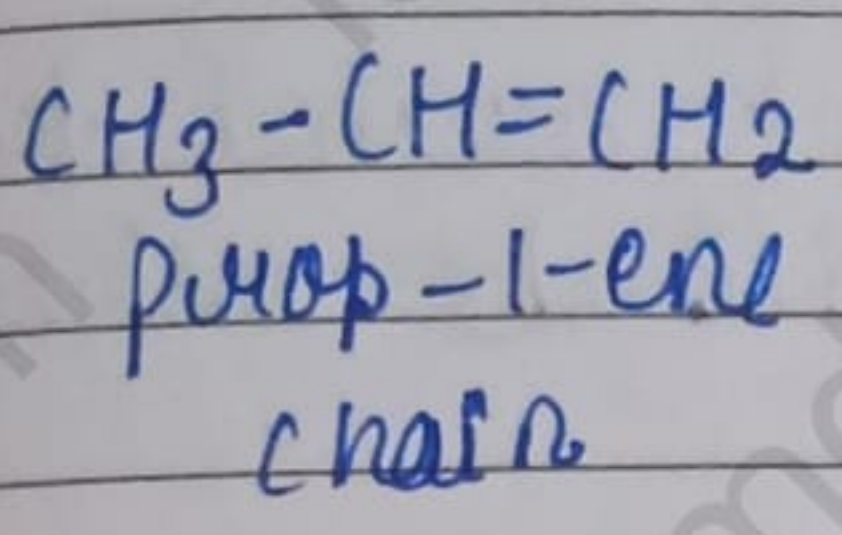 CH3-CH=CH2
prop-1-ene
chain